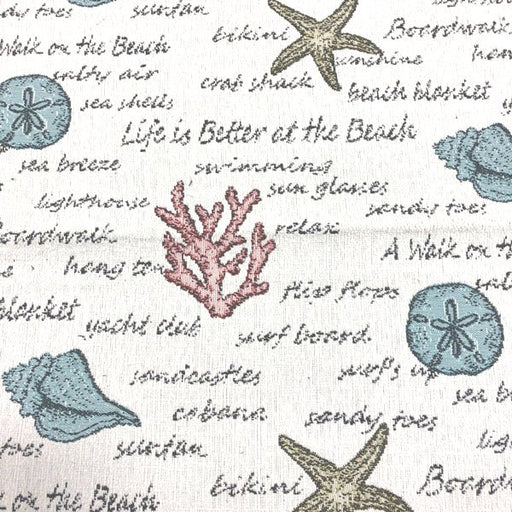 suntan
bikini
Boardwalk
A Walk on the Beach
sunshine
salty air
crab shack
beach blanket
sea shells
Life is Better at the Beach
sea breeze
swimming
sun glasses
lighthouse
sandy toes
Boardwalk
relax
A Walk on th
hang ten
blanket
flip flops
yacht club
surf board
sandcastles
surf's up
sea b
cabana
sandy toes
toes
suntan
lig
bikini
Boardw
k on the Beach